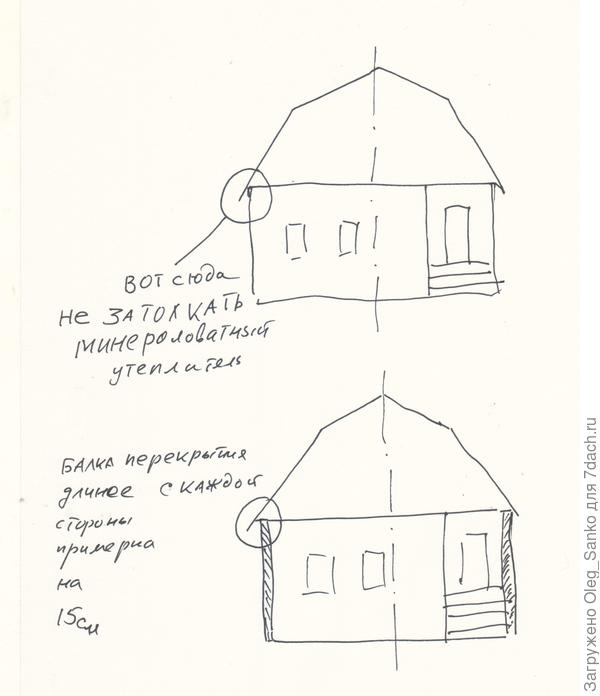 ВОТ сюда
НЕ ЗАТОЛКАТЬ
минероловатный
утеплитель
БАЛКА перекрытия
длинее с каждой
стороны
примерна
на
15см
Загружено Oleg_Sanko для 7dach.ru